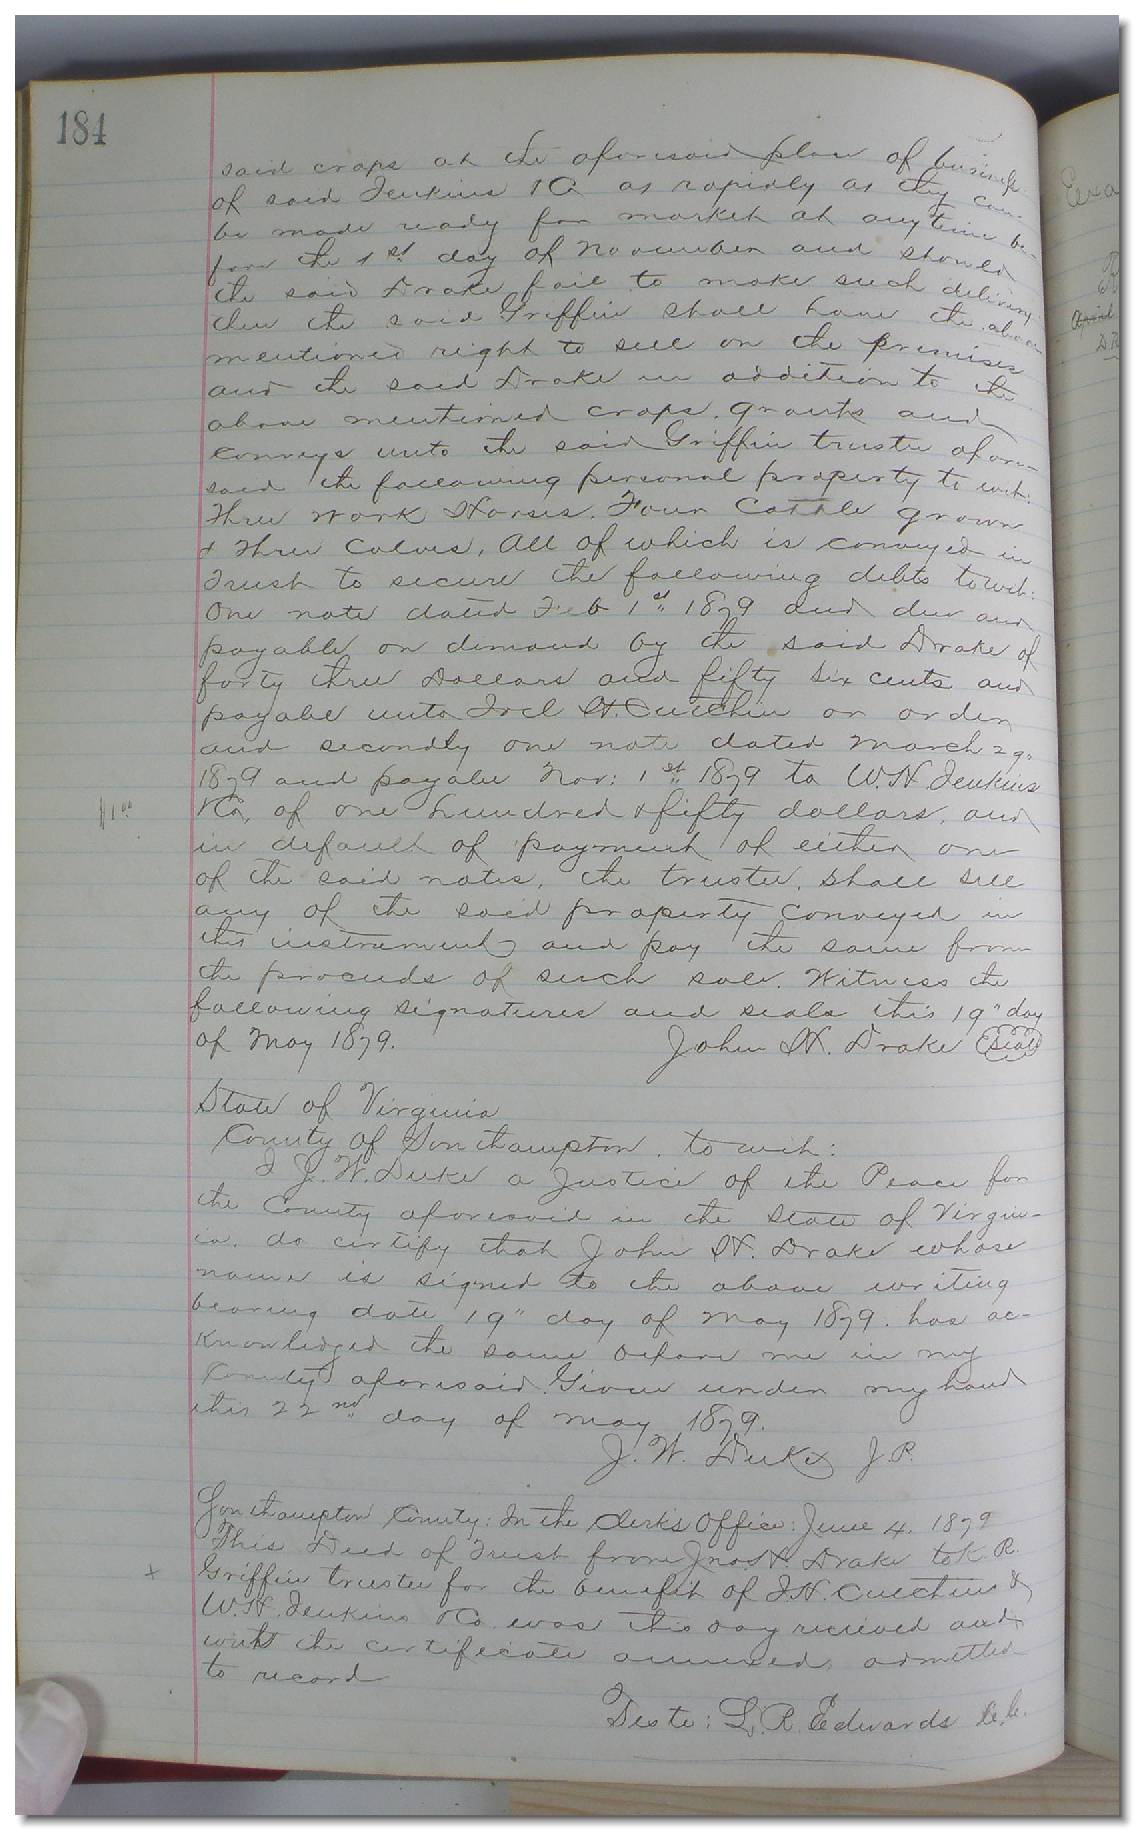 184
said crops at the aforesaid place of business
of said Jenkins & Co as rapidly as they can
be made ready for market at any time be-
fore the 1st day of November and should
the said Drake fail to make such delivery
then the said Griffin shall have the above
mentioned right to sell on the premises
and the said Drake in addition to the
above mentioned crops. grants and
conveys unto the said Griffin trustee afore-
said the following personal property to wit:
Three Work Horses. Four Cattle grown
& Three Calves, All of which is conveyed in
Trust to secure the following debts towit:
One note dated Feb 1st 1879 and due and
payable on demand by the said Drake of
forty three Dollars and fifty six cents and
payable unto Joel H. Cutchin or order
and secondly one note dated March 29"
1879 and payable Nov: 1st 1879 to W.H. Jenkins
$1.00
& Co, of one hundred & fifty dollars, and
in default of payment of either one
of the said notes, the trustee, shall sell
any of the said property conveyed in
this instrument and pay the same from
the proceeds of such sale. Witness the
following signatures and seals this 19" day
of May 1879. John H. Drake (Seal)
State of Virginia
County of Southampton. to wit:
I J. W. Duke a Justice of the Peace for
the County aforesaid in the State of Virgin-
ia. do certify that John H. Drake whose
name is signed to the above writing
bearing date 19" day of May 1879. has ac-
knowledged the same before me in my
County aforesaid. Given under my hand
this 22nd day of May 1879.
J. W. Duke J.P.
Southampton County: In the Clerks Office: June 4. 1879
This Deed of Trust from Jno. H. Drake to K. R.
x
Griffin trustee for the benefit of J.H. Cutchins &
W.H. Jenkins & Co was this day recieved and
with the certificate annexed, admitted
to record
Teste: L. R. Edwards C.C.